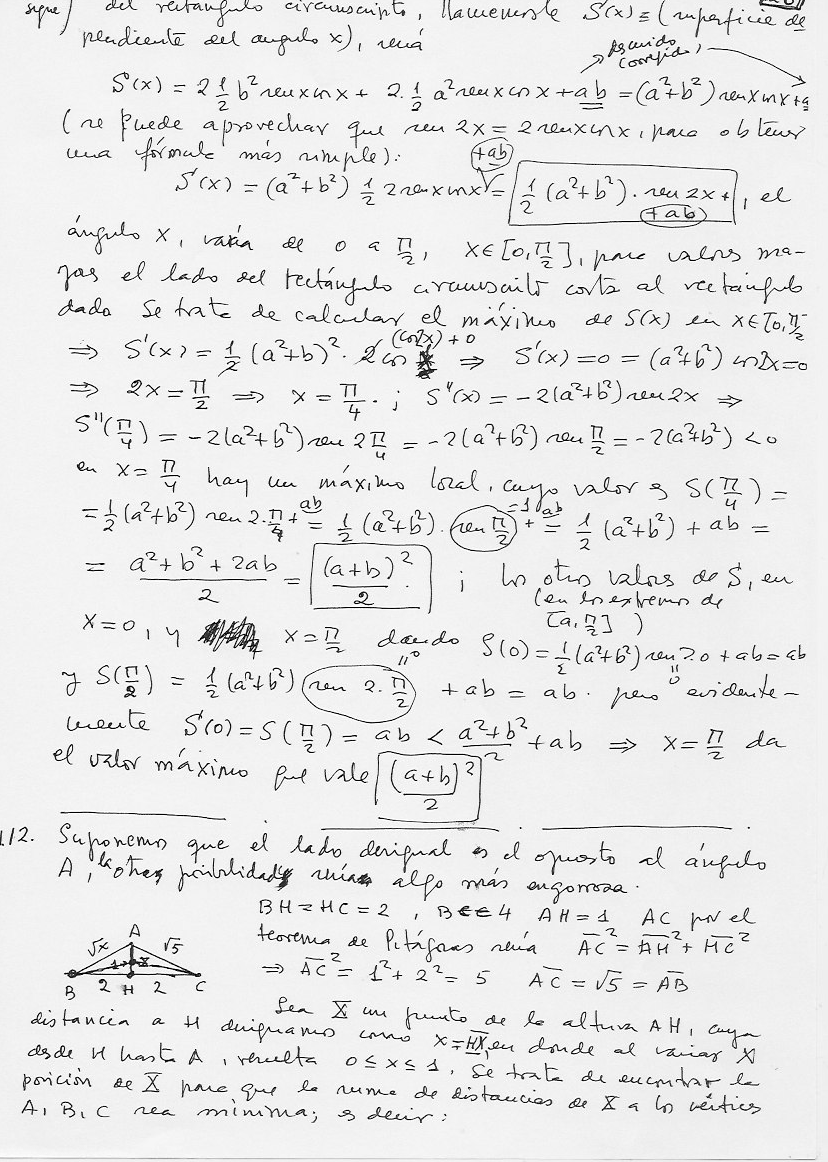 sigue) del rectángulo circunscripto, llamémosle S(x) ≡ (superficie de
pendiente del angulo x), será
seguido corregido,
S(x) = 2 1/2 b² senx cosx + 2. 1/2 a² senx cosx + ab = (a²+b²) senx cosx + a
(se puede aprovechar que sen 2x = 2 senx cosx, para obtener
una fórmula más simple): +ab
S(x) = (a²+b²) 1/2 2 senx cosx = 1/2 (a²+b²). sen 2x + +ab, el
ángulo x, varía de 0 a π/2, x∈[0,π/2], para valores ma-
yores el lado del rectángulo circunscrito corta al rectángulo
dado Se trata de calcular el máximo de S(x) en x∈[0,π/2
⇒ S'(x) = 1/2 (a²+b)². 2 cos (cos2x)+0 ⇒ S'(x)=0 = (a²+b²) cos2x=0
⇒ 2x = π/2 ⇒ x = π/4. ; S''(x) = -2(a²+b²) sen 2x ⇒
S''(π/4) = -2(a²+b²) sen 2π/4 = -2(a²+b²) sen π/2 = -2(a²+b²) < 0
en x = π/4 hay un máximo local, cuyo valor es S(π/4) =
= 1/2 (a²+b²) sen 2.π/4 + ab = 1/2 (a²+b²). sen π/2 =1 + ab = 1/2 (a²+b²) + ab =
= a²+b²+2ab / 2 = (a+b)²/2 . ; los otros valores de S, en
(en los extremos de [a,π/2])
x=0, y x=π/2 dando S(0) = 1/2 (a²+b²) sen 2.0 + ab = ab
y S(π/2) = 1/2 (a²+b²) sen 2.π/2 =0 + ab = ab. pero evidente-
mente S(0) = S(π/2) = ab < a²+b²/2 + ab ⇒ x=π/2 da
el valor máximo que vale (a+b)²/2
112. Suponemos que el lado desigual es el opuesto al ángulo
A, la otra posibilidad sería algo más engorrosa.
BH = HC = 2, B 4 AH = 1 AC por el
teorema de Pitágoras sería AC² = AH² + HC²
⇒ AC² = 1² + 2² = 5 AC = √5 = AB
A
√x √5
1 x
B 2 H 2 C
Sea X un punto de la altura AH, cuya
distancia a H designamos como x = HX, en donde al variar X
desde H hasta A, resulta 0 ≤ x ≤ 1. Se trata de encontrar la
posición de X para que la suma de distancias de X a los vértices
A, B, C sea mínima; es decir: